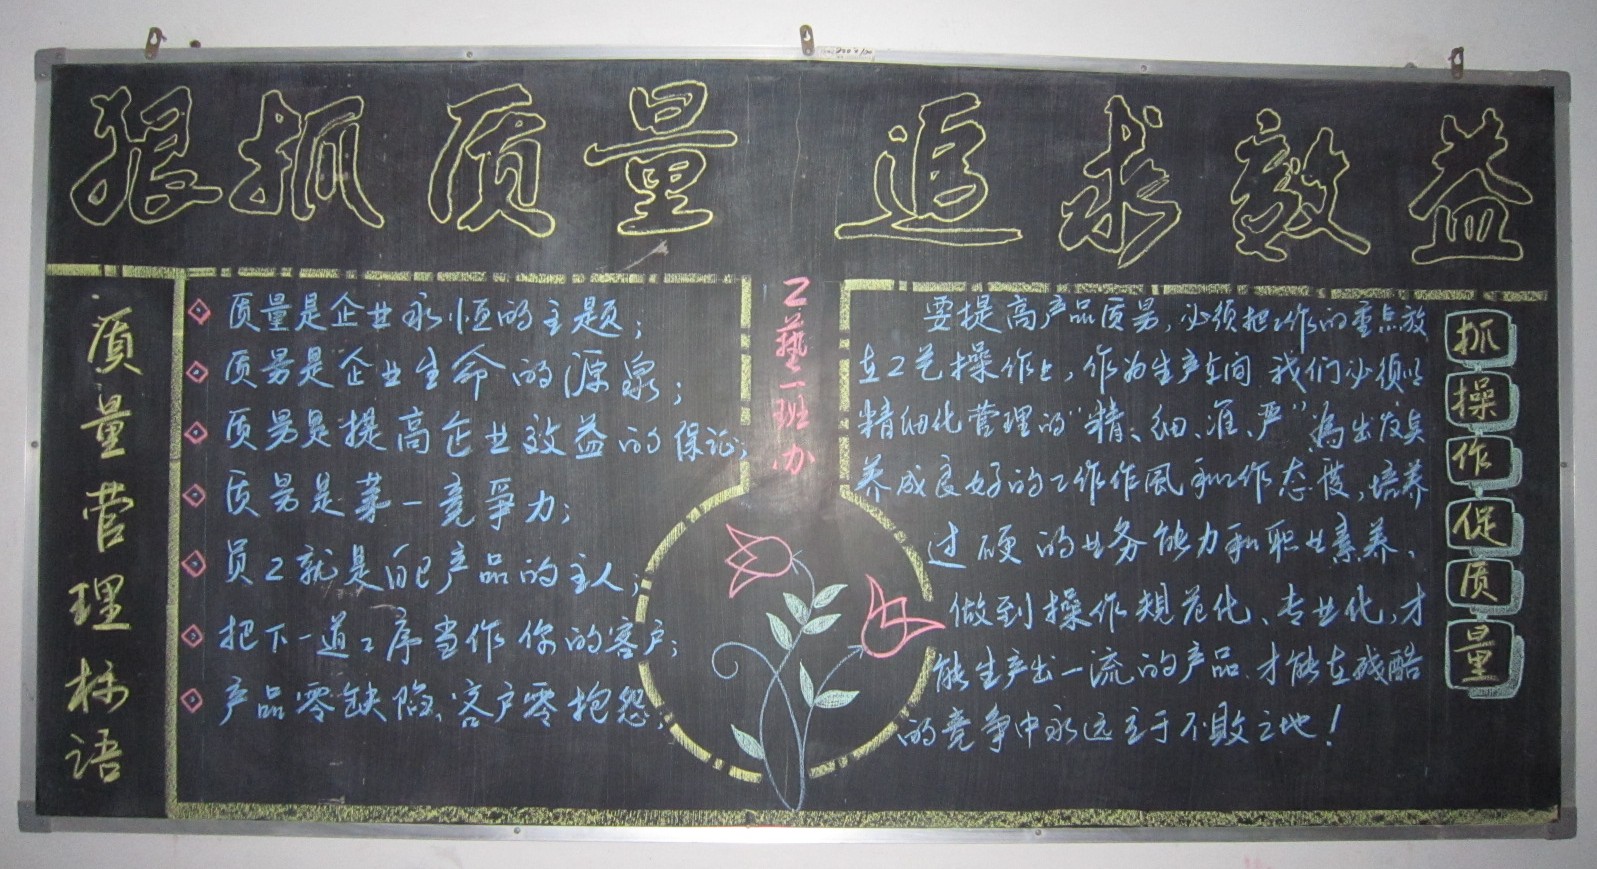 狠抓质量 追求效益
质量管理标语
质量是企业永恒的主题；
质量是企业生命的源泉；
质量是提高企业效益的保证；
质量是第一竞争力；
员工就是自己产品的主人；
把下一道工序当作你的客户；
产品零缺陷、客户零抱怨；
工藝一班办
要提高产品质量，必须把工作的重点放
在工艺操作上，作为生产车间 我们必须以
精细化管理的“精、细、准、严”為出发点
养成良好的工作作風和工作态度，培养
过硬的业务能力和职业素养、
做到操作规范化、专业化，才
能生产出一流的产品、才能在残酷
的竞争中永远立于不败之地！
抓操作促质量